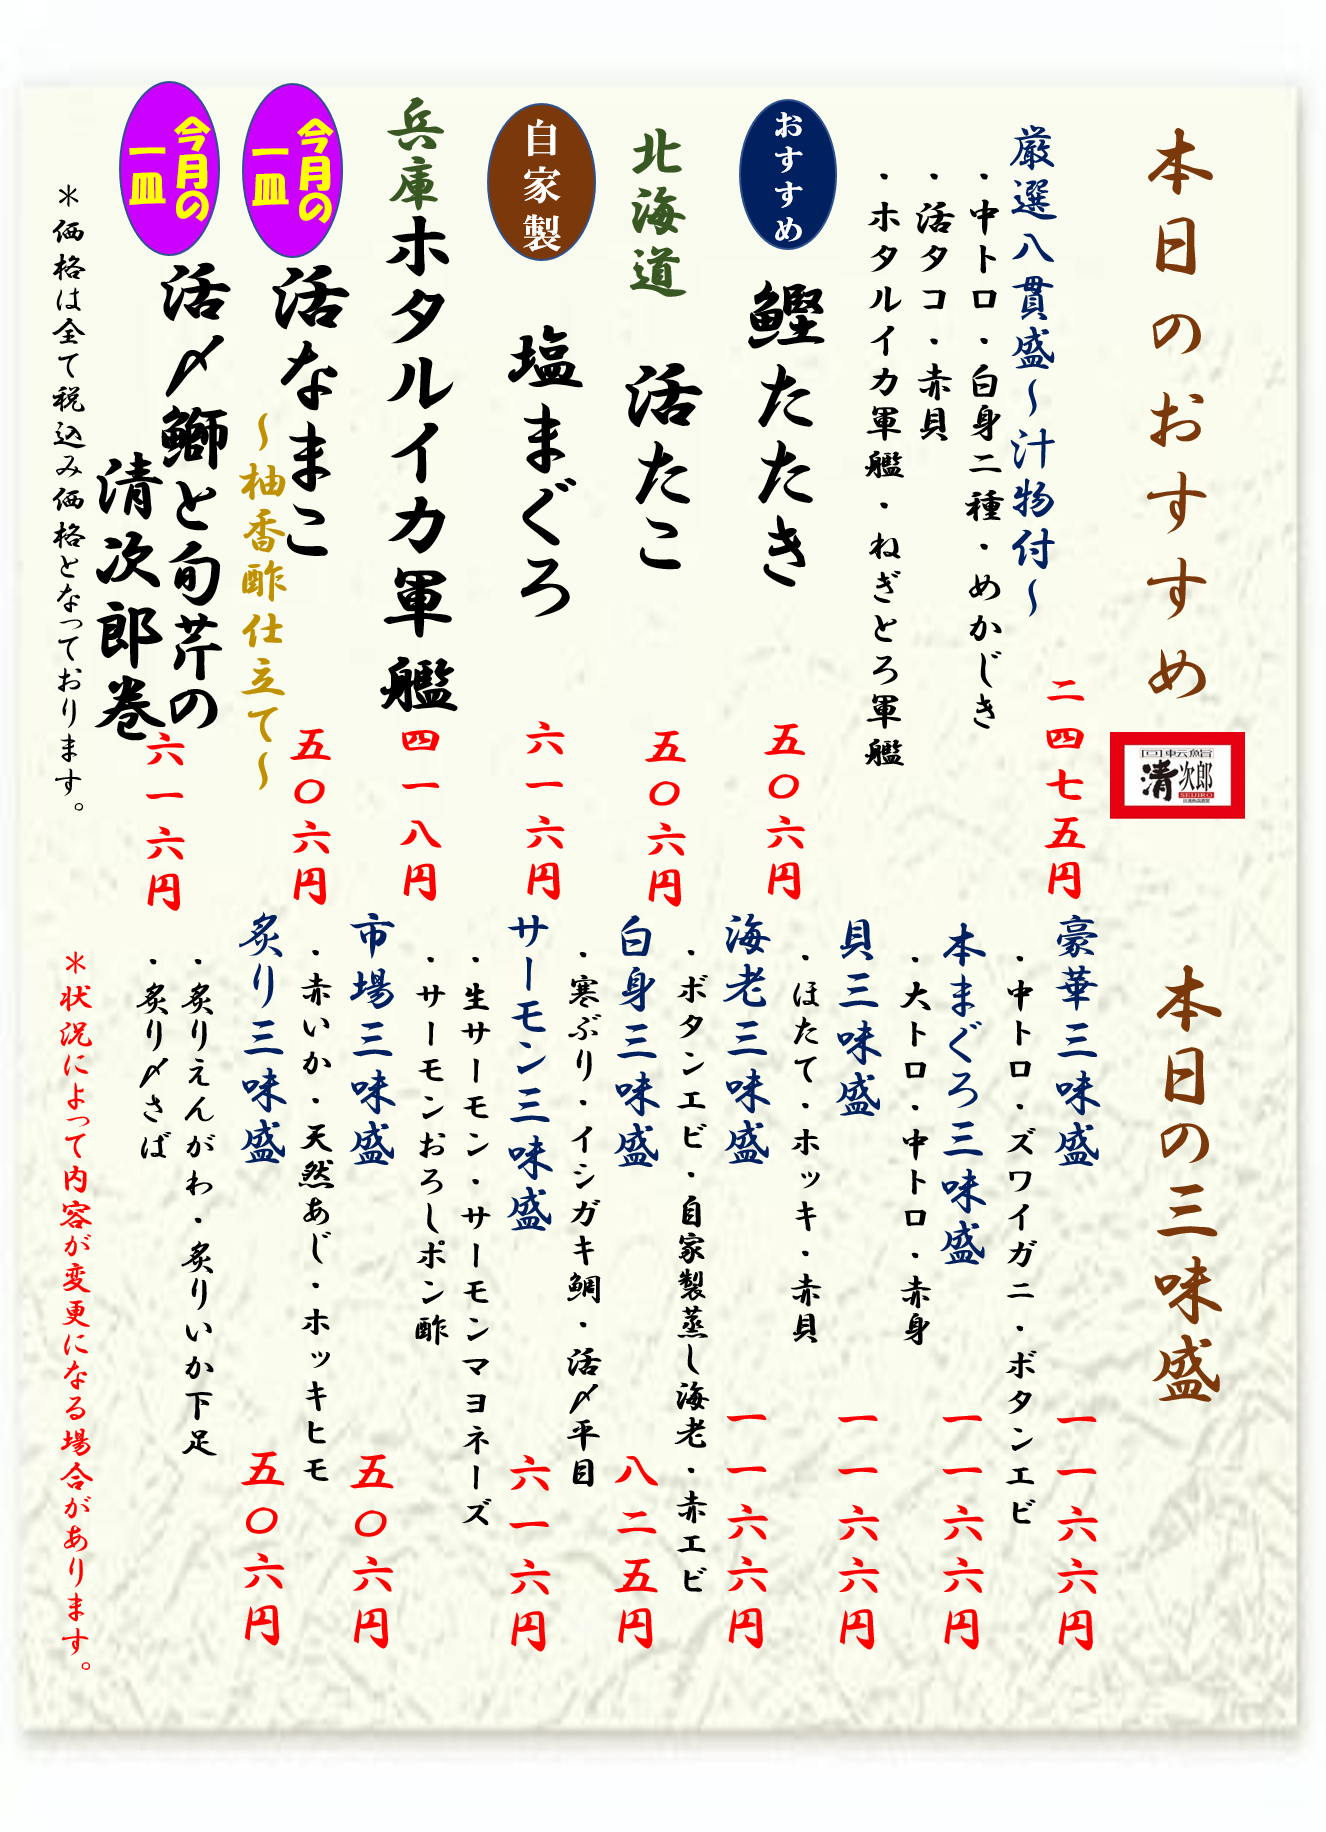 本日のおすすめ
回転鮨
清次郎
SEIJIRO
厳選八貫盛～汁物付～
二四七五円
・中トロ・白身二種・めかじき
・活タコ・赤貝
・ホタルイカ軍艦・ねぎとろ軍艦
おすすめ
鰹たたき
五〇六円
北海道
活たこ
五〇六円
自家製
塩まぐろ
六一六円
兵庫
ホタルイカ軍艦
四一八円
今月の
一皿
活なまこ
～柚香酢仕立て～
五〇六円
今月の
一皿
活〆鰤と旬芹の
清次郎巻
六一六円
＊価格は全て税込み価格となっております。
本日の三味盛
豪華三味盛
一一六六円
・中トロ・ズワイガニ・ボタンエビ
本まぐろ三味盛
一一六六円
・大トロ・中トロ・赤身
貝三味盛
一一六六円
・ほたて・ホッキ・赤貝
海老三味盛
一一六六円
・ボタンエビ・自家製蒸し海老・赤エビ
白身三味盛
八二五円
・寒ぶり・イシガキ鯛・活〆平目
サーモン三味盛
六一六円
・生サーモン・サーモンマヨネーズ
・サーモンおろしポン酢
市場三味盛
五〇六円
・赤いか・天然あじ・ホッキヒモ
炙り三味盛
五〇六円
・炙りえんがわ・炙りいか下足
・炙り〆さば
＊状況によって内容が変更になる場合があります。